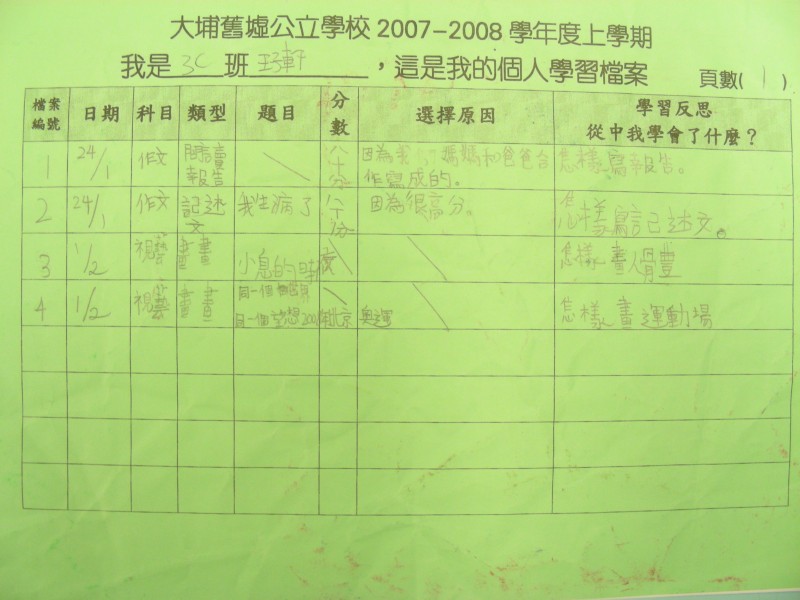 大埔舊墟公立學校 2007-2008 學年度上學期
我是 3C 班 軒 ，這是我的個人學習檔案 頁數( 1 )
檔案編號 日期 科目 類型 題目 分數 選擇原因 學習反思 從中我學會了什麼？
1 24/1 作文 閱讀報告 八十分 因為我 媽媽和爸爸合作寫成的。 怎樣寫報告。
2 24/1 作文 記述文 我生病了 八十分 因為很高分。 怎樣寫記述文。
3 1/2 視藝 畫畫 小息的時候 怎樣畫人
4 1/2 視藝 畫畫 同一個世界 同一個夢想2008年北京奧運 怎樣畫運動場